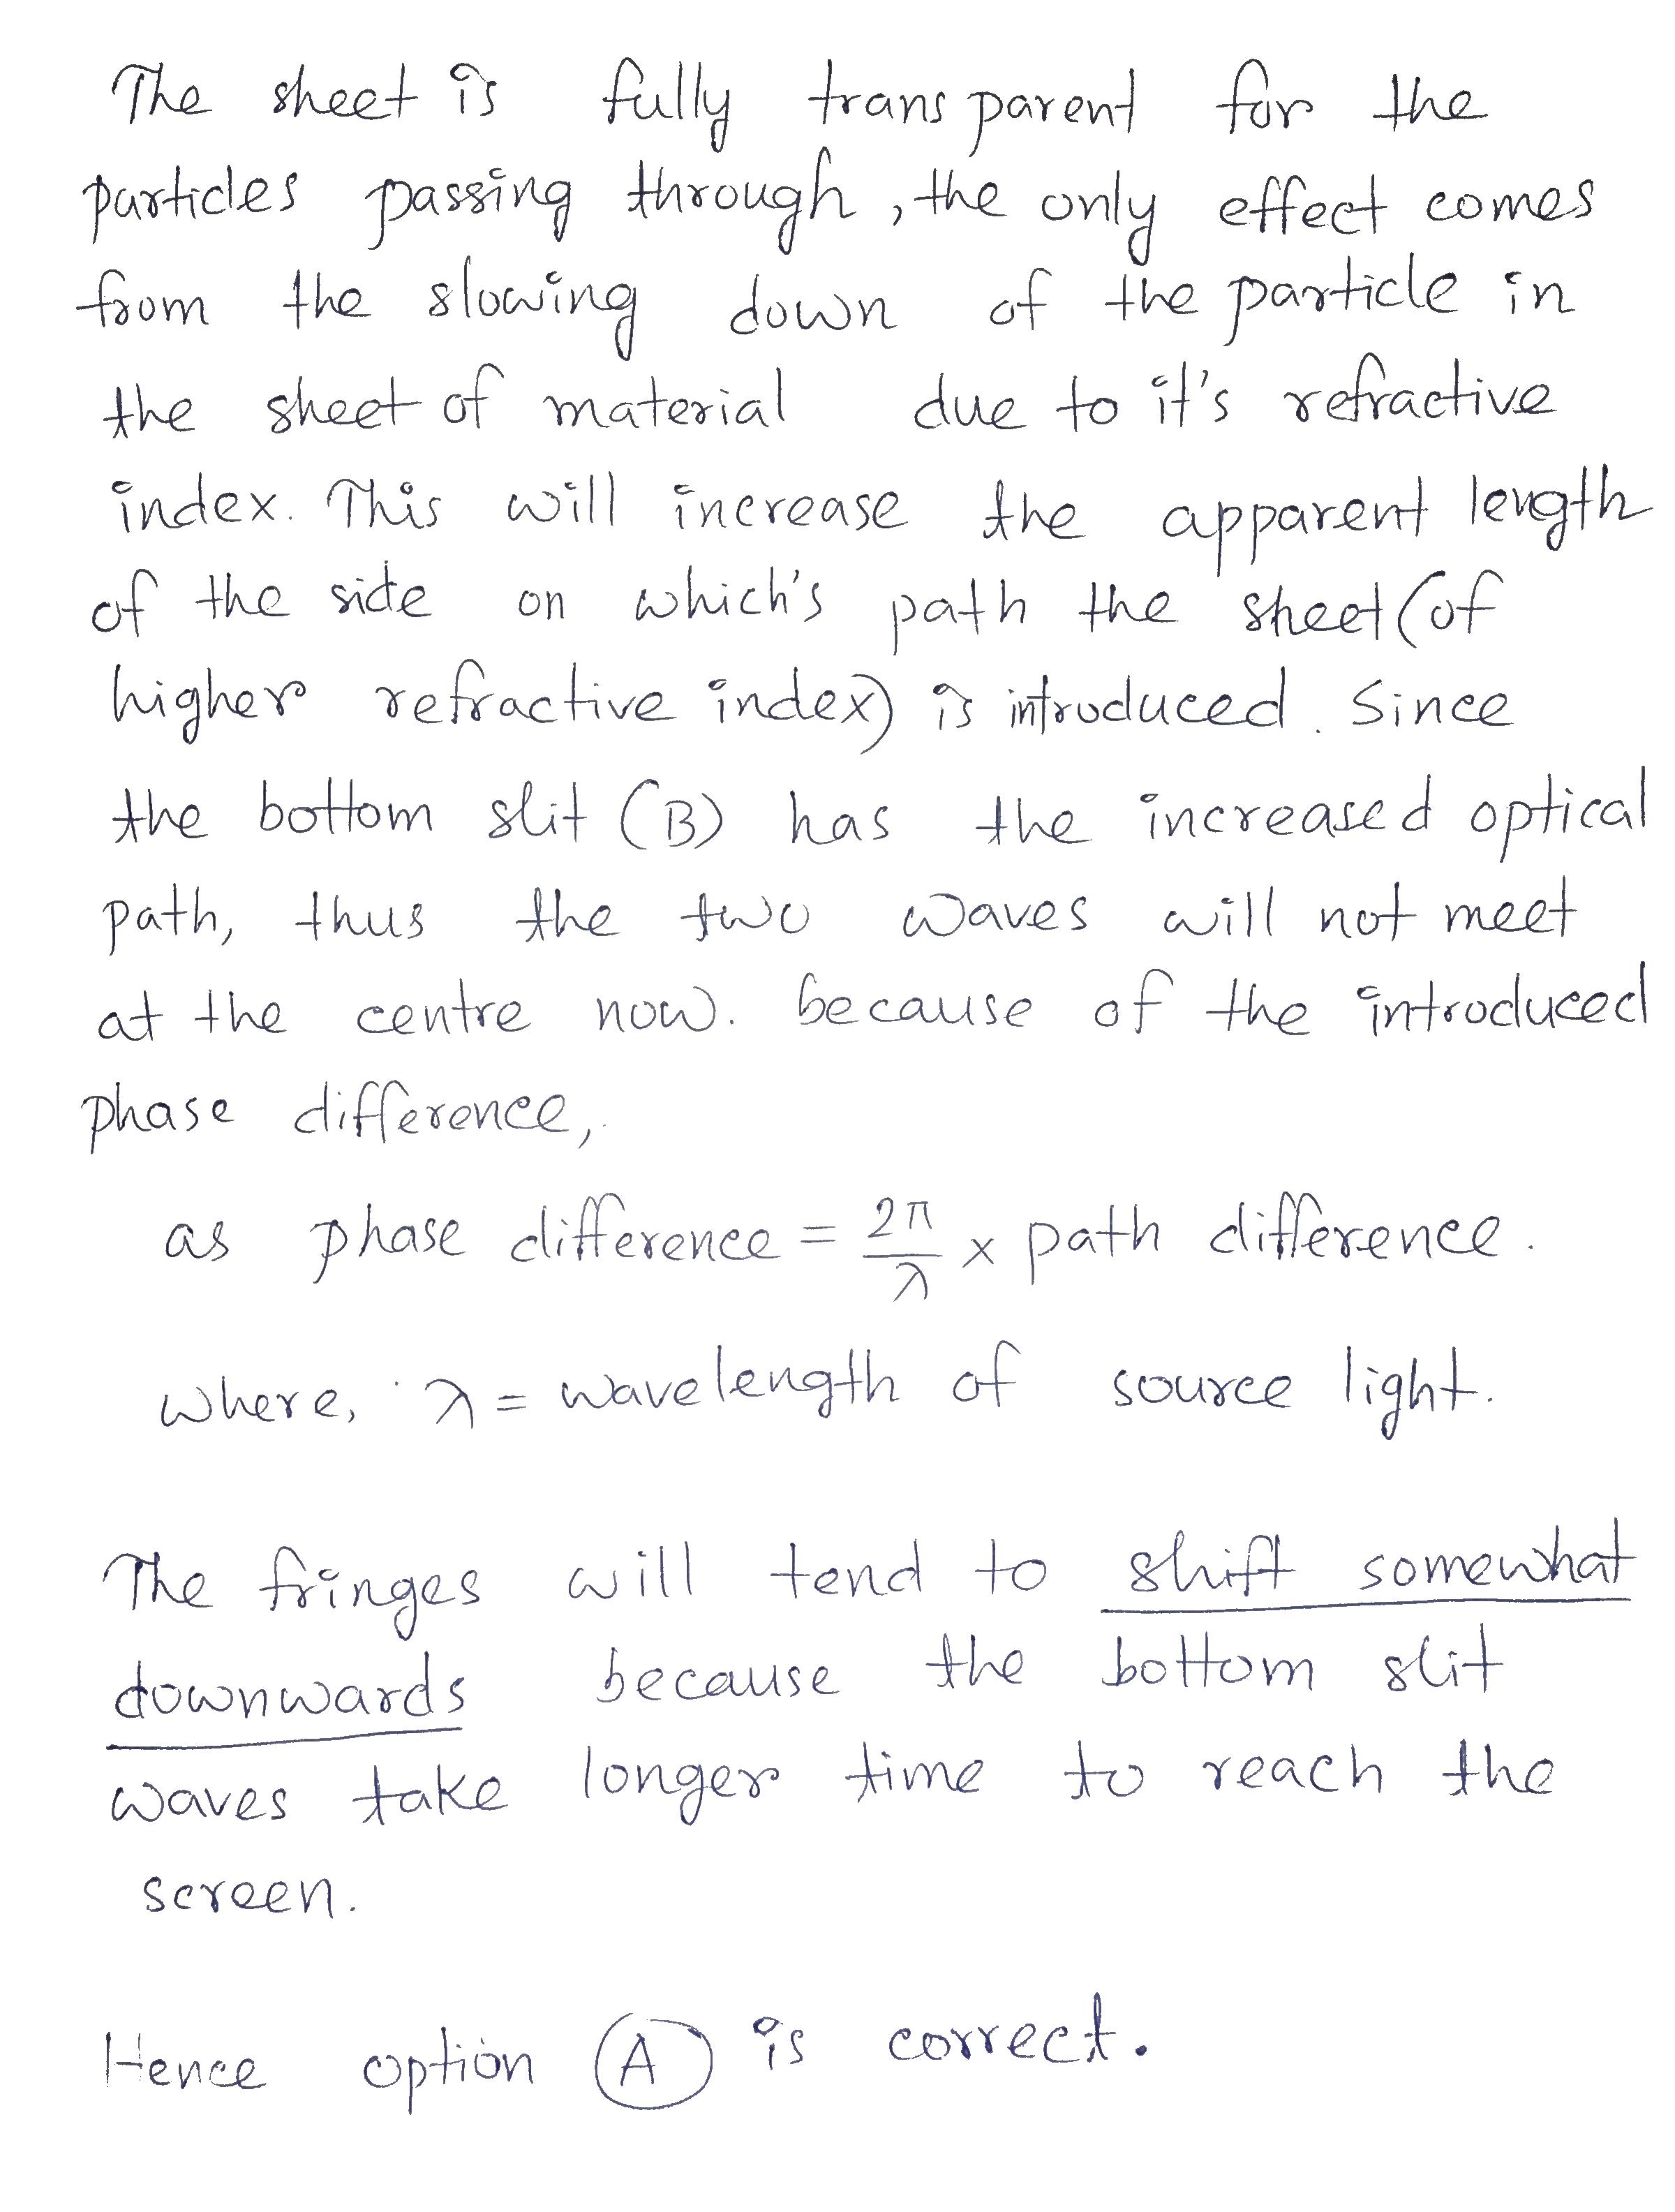 The sheet is fully transparent for the
particles passing through, the only effect comes
from the slowing down of the particle in
the sheet of material due to it's refractive
index. This will increase the apparent length
of the side on which's path the sheet (of
higher refractive index) is introduced. Since
the bottom slit (B) has the increased optical
path, thus the two waves will not meet
at the centre now. because of the introduced
phase difference,
as phase difference = 2π/λ × path difference.
where, λ = wavelength of source light.
The fringes will tend to shift somewhat
downwards because the bottom slit
waves take longer time to reach the
screen.
Hence option (A) is correct.